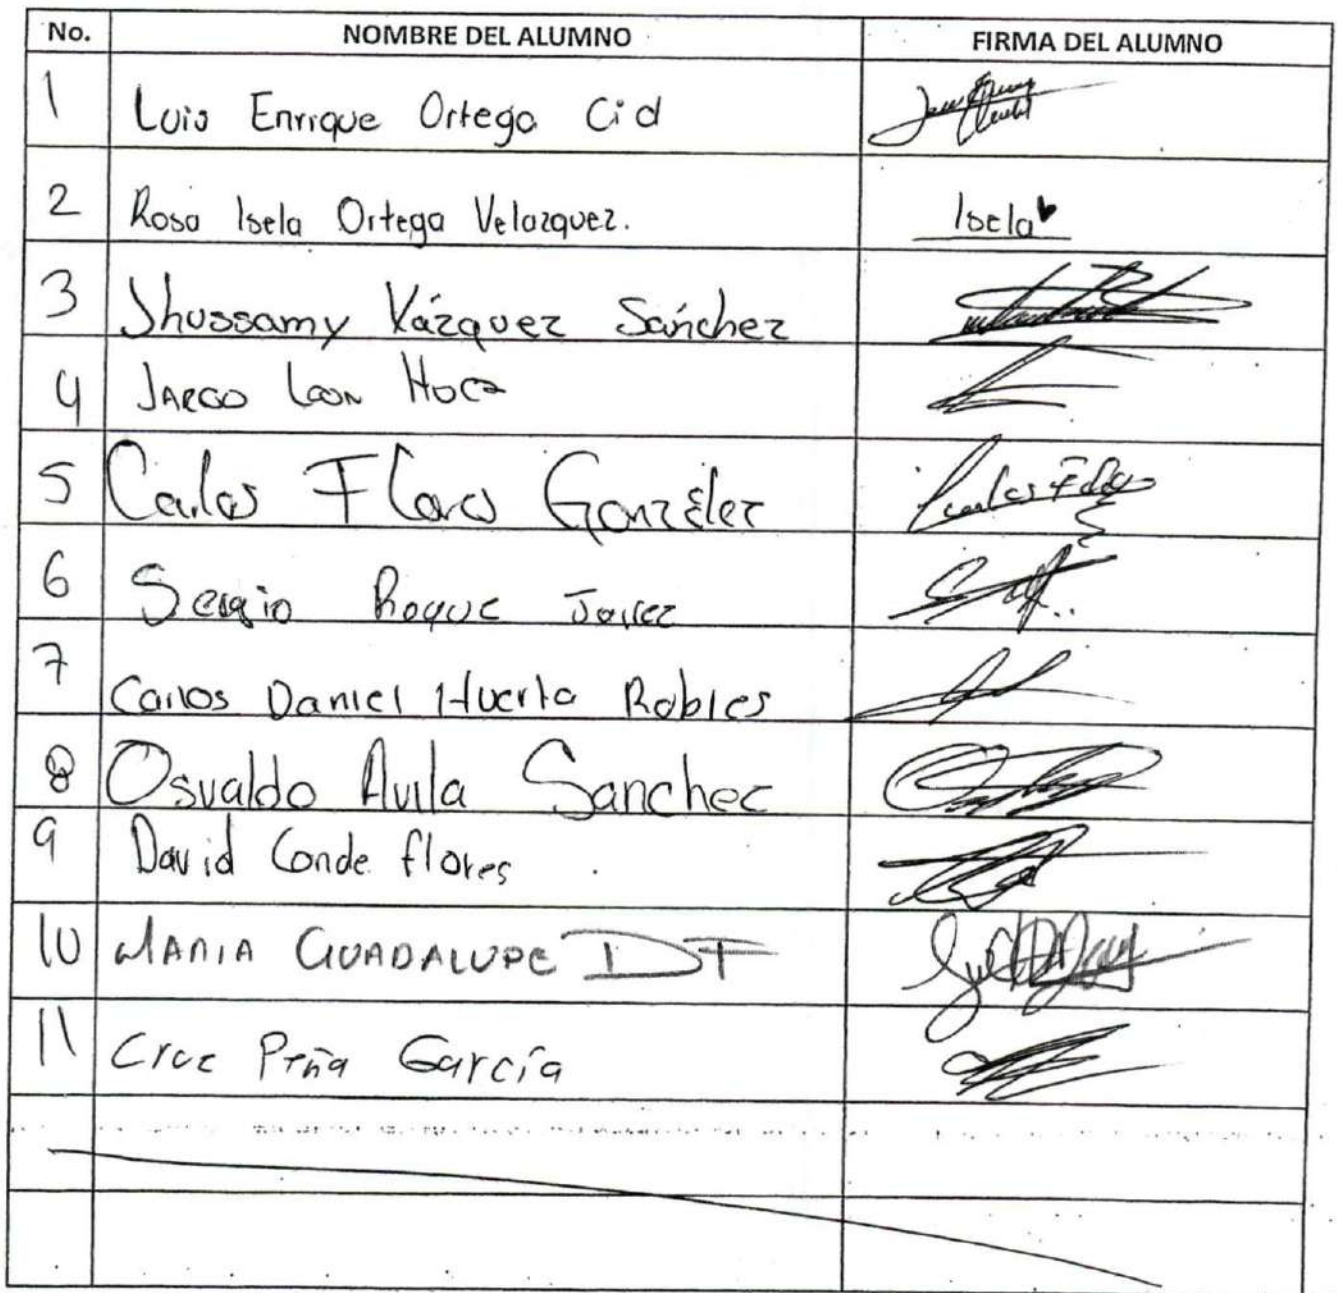 No. NOMBRE DEL ALUMNO FIRMA DEL ALUMNO
1 Luis Enrique Ortega Cid
2 Rosa Isela Ortega Velazquez. Isela
3 Jhussamy Vázquez Sánchez
4 Leon
5 Carlos Flores González
6 Sergio Roque
7 Carlos Daniel Huerta Robles
8 Osvaldo Avila Sanchez
9 David Conde flores
10 MARIA GUADALUPE DF
11 Cruz Peña García